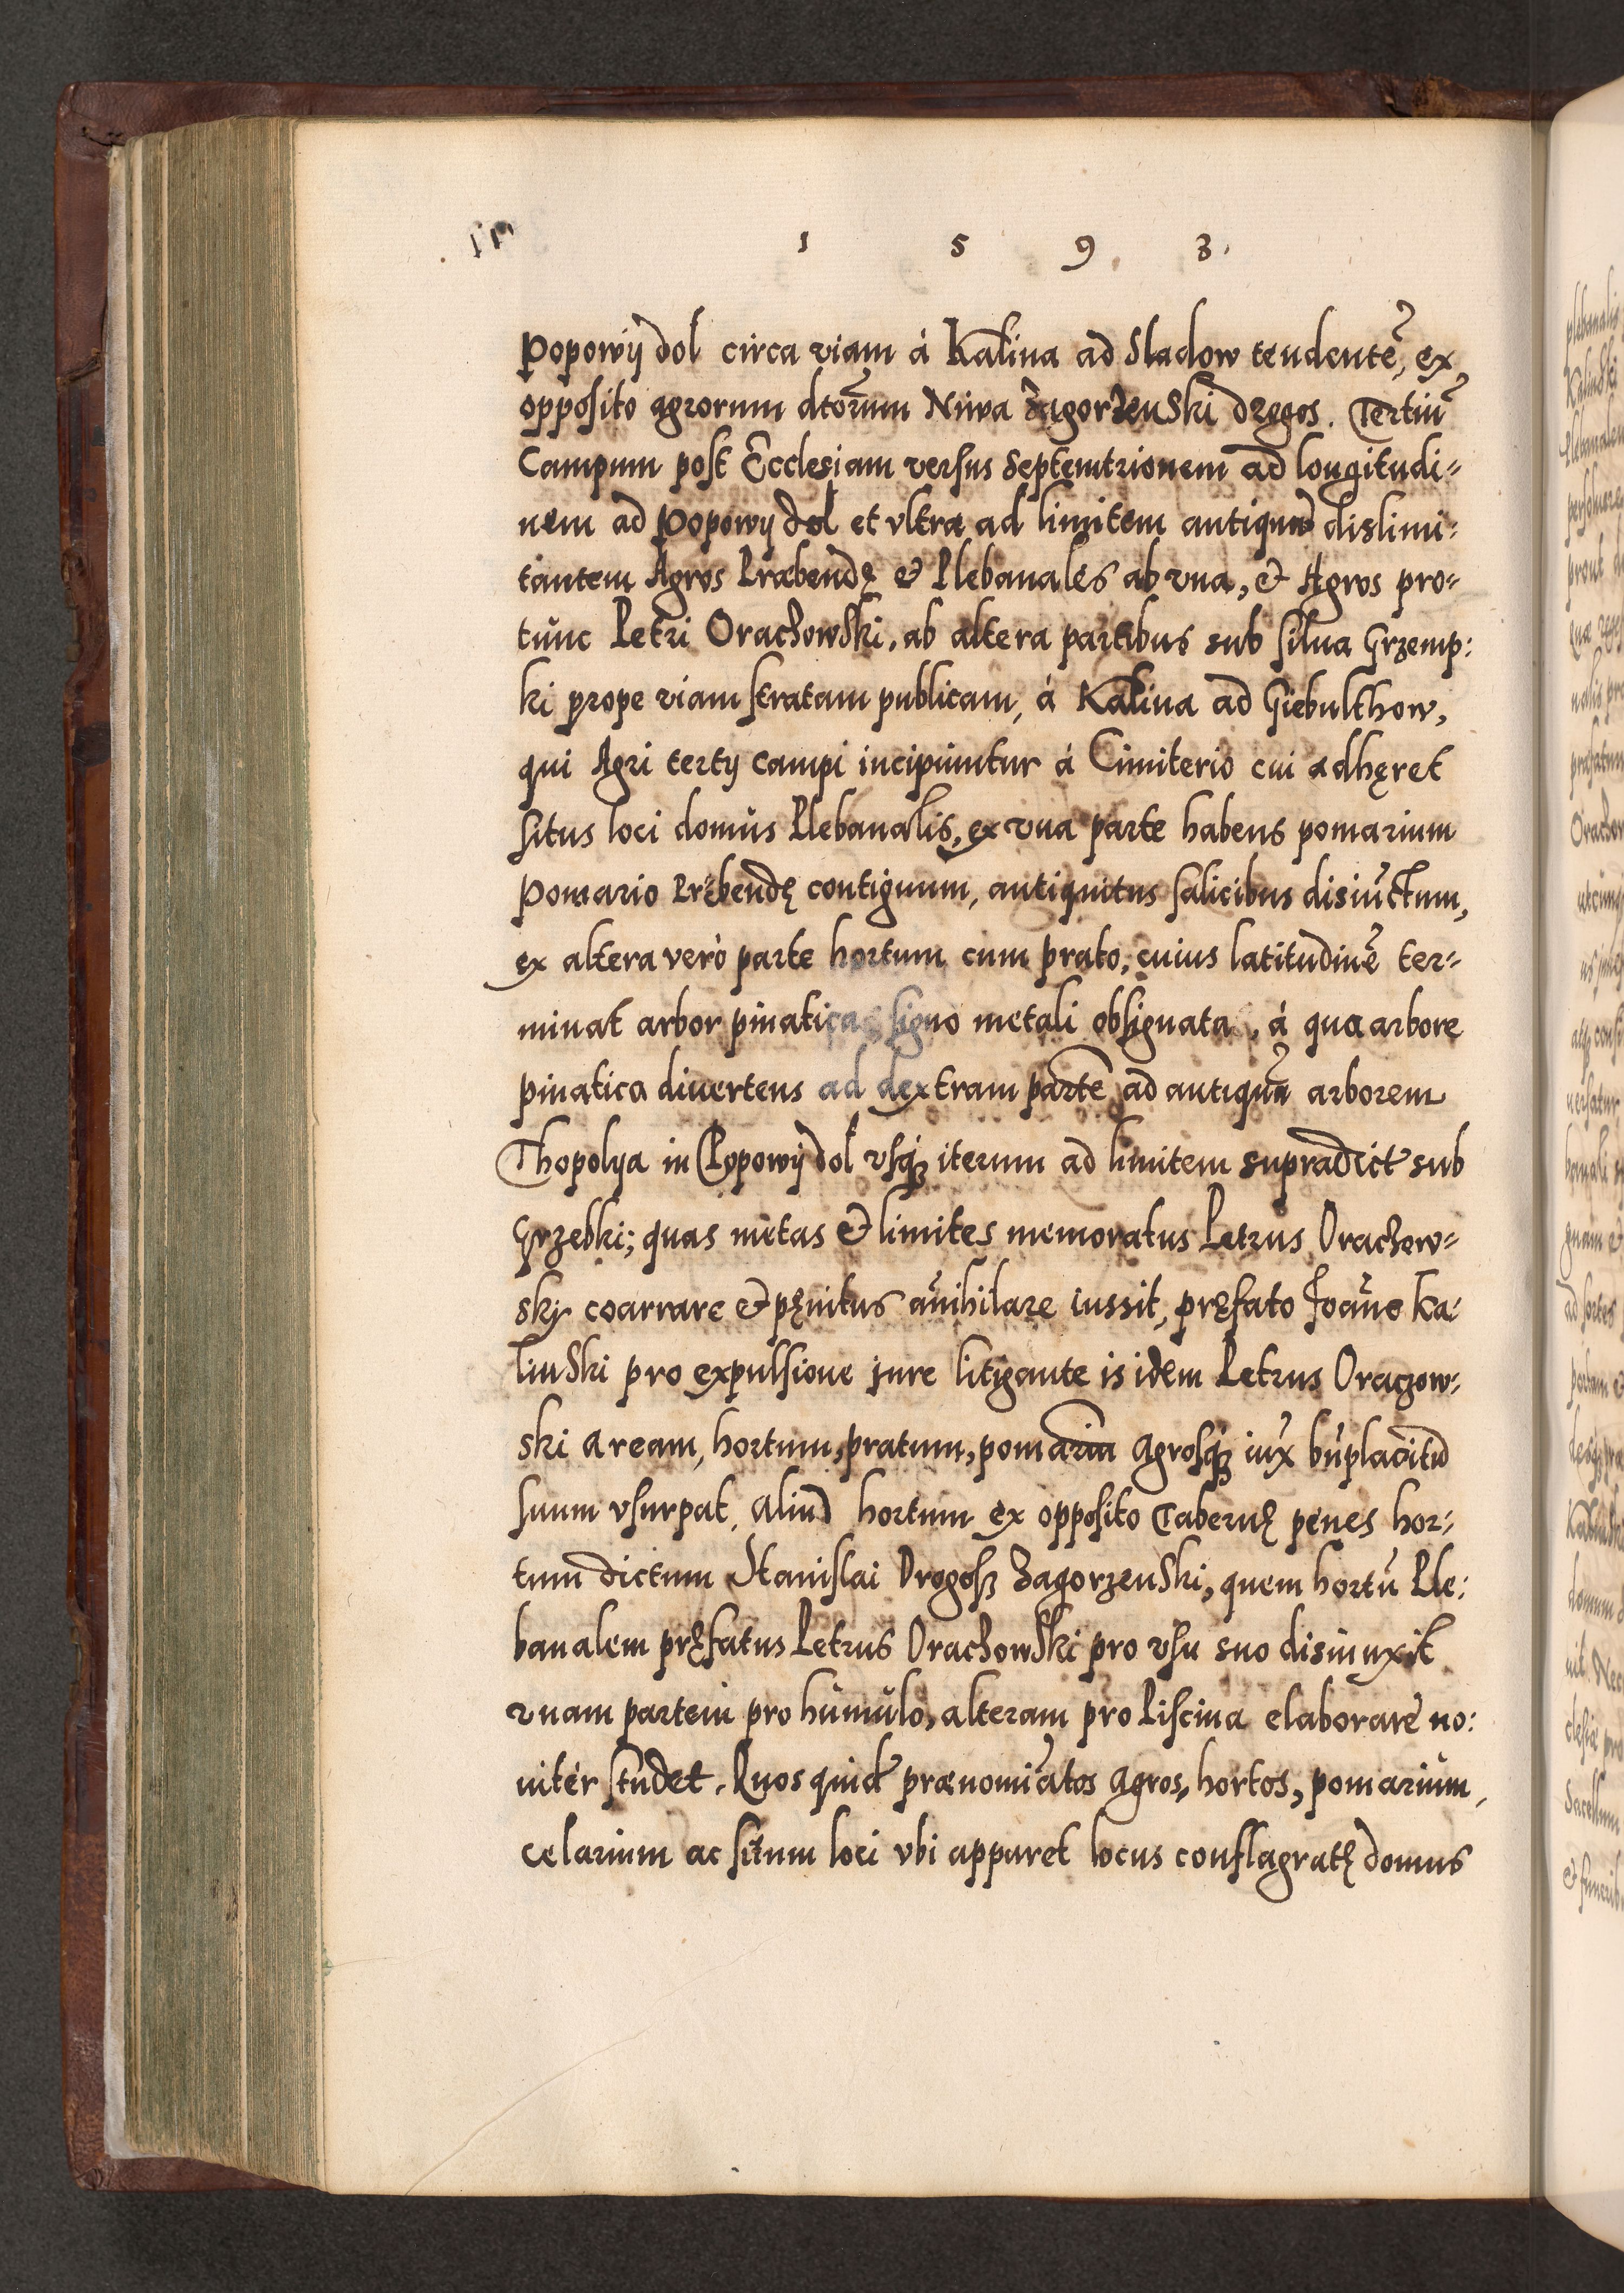 1 5 9 3.
Popowÿ dol circa viam á Kalina ad Sladow tendentẽ, ex
opposito agrorum dtorũm Niwa ZagorzenSki Drogos. Tertiũ
Campum post Ecclesiam versus Septemtrionem ad longitudi-
nem ad Popowÿ dol et vltra ad limitem antiquũ dislimi-
tantem Agros Præbendę & Plebanales ab vna, & Agros pro-
tunc Petri OrachowSki, ab altera partibus sub silua Grzemp:
ki prope viam stratam publicam, á Kalina ad Giebulthow,
qui Agri tertÿ campi incipiuntur á Cimiterio cui adhęret
situs loci domus Plebanalis, ex vna parte habens pomarium
Pomario Prębendę contiguum, antiquitus salicibus disiũctum,
ex altera verò parte hortum cum prato, cuius latitudinẽ ter-
minat arbor pinatica signo metali obsignata, á qua arbore
pinatica diuertens ad dextram partẽ ad antiquã arborem
Thopolya in Popowÿ dol vsq̃ iterum ad limitem supradict sub
Grzebki; quas metas & limites memoratus Petrus Orachow-
skj coarrare & pęnitus ãnihilare iussit, pręfato Joãne Ka-
linSki pro expulsione jure litigante is idem Petrus Oraczow-
ski aream, hortum, pratum, pomariũ Agrosq̃ iux̃ bñplacitũ
suum vsurpat. Aliud hortum ex opposito Tabernę penes hor-
tum dictum Stanislai Drogosz ZagorzenSki, quem hortũ Ple:
banalem pręfatus Petrus OrachowSki pro vsu suo disiunxit
vnam partem pro humulo, alteram pro Piscina elaborare no:
uiter studet. Quos quid̃ prænomiãtos Agros, hortos, pomarium,
celarium ac situm loci vbi apparet locus conflagratę domus